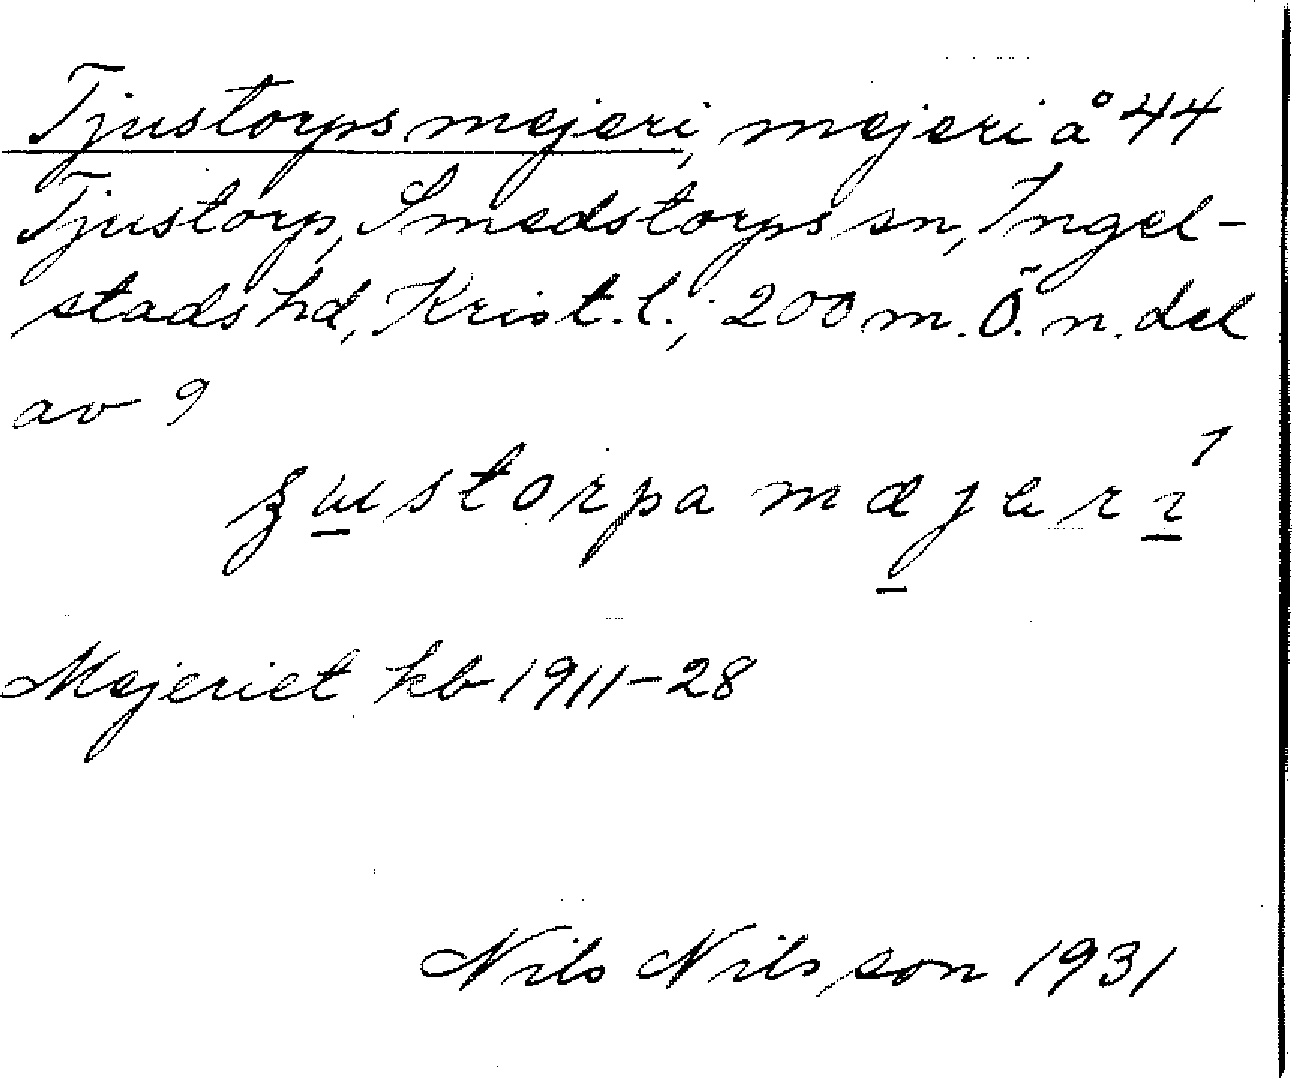 Tjustorps mejeri, mejeri å 44
Tjustorp, Smedstorps sn, Ingel-
stads hd, Krist. l.; 200 m. Ö. n. del
av 9
mæjeri
Mejeriet kb 1911-28
Nils Nilsson 1931